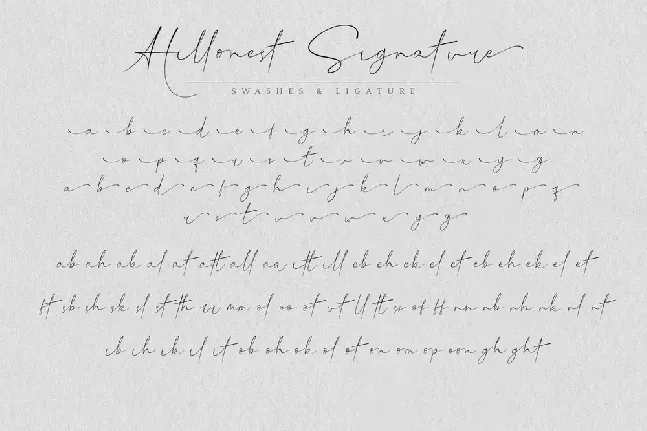 Hillonest Signature
SWASHES & LIGATURE
a b c d e f g h i j k l m n
o p q r s t u v w x y z
a b c d e f g h i j k l m n o p q
r s t u v w x y z
ab ah ak al at att all aa itt ill cb ch ck cl ct eb eh ek el et
ft sb sh sk sl st th
ot ll tt of ff nn nb nh nk nl nt
ib ih ik il it ob oh ok ol ot on om op oon gh ght